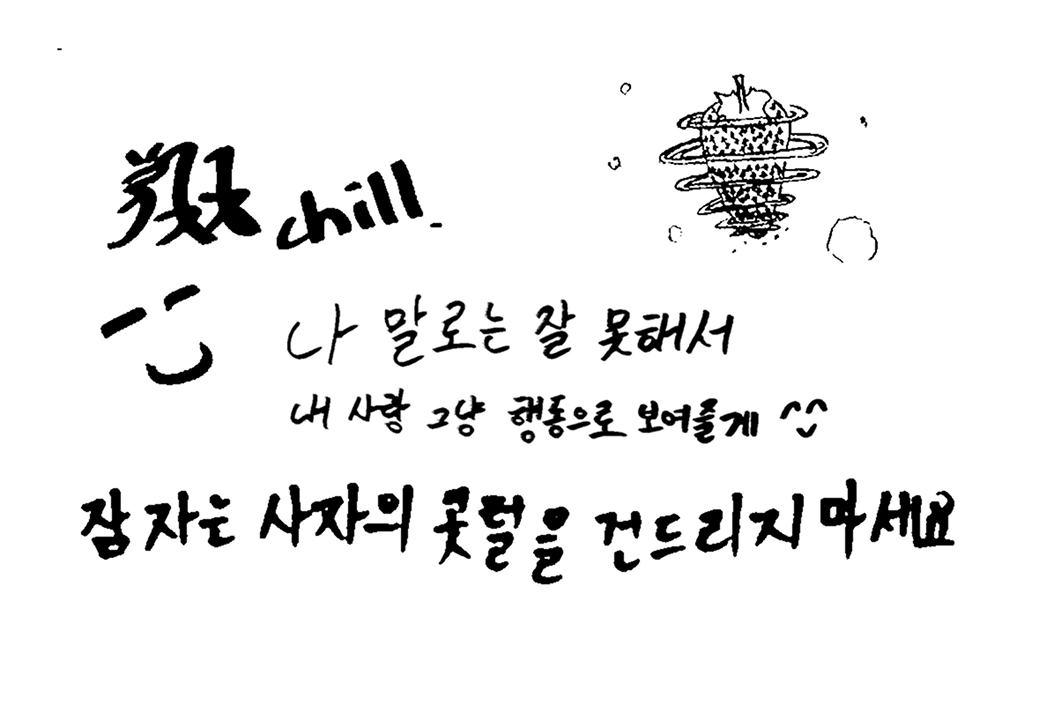 chill.
나 말로는 잘 못해서
내 사랑 그냥 행동으로 보여줄게 ^^
잠자는 사자의 콧털을 건드리지 마세요